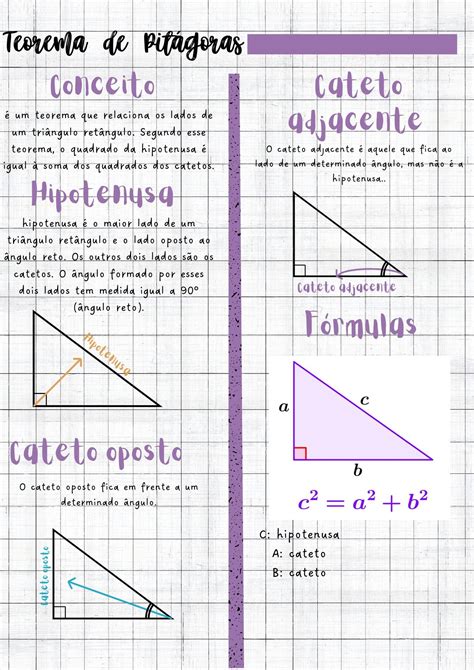 Teorema de Pitágoras
Conceito
é um teorema que relaciona os lados de
um triângulo retângulo. Segundo esse
teorema, o quadrado da hipotenusa é
igual à soma dos quadrados dos catetos.
Hipotenusa
hipotenusa é o maior lado de um
triângulo retângulo e o lado oposto ao
ângulo reto. Os outros dois lados são os
catetos. O ângulo formado por esses
dois lados tem medida igual a 90º
(ângulo reto).
Hipotenusa
Cateto oposto
O cateto oposto fica em frente a um
determinado ângulo.
Cateto oposto
Cateto
adjacente
O cateto adjacente é aquele que fica ao
lado de um determinado ângulo, mas não é a
hipotenusa..
Cateto adjacente
Fórmulas
a
c
b
c² = a² + b²
C: hipotenusa
A: cateto
B: cateto